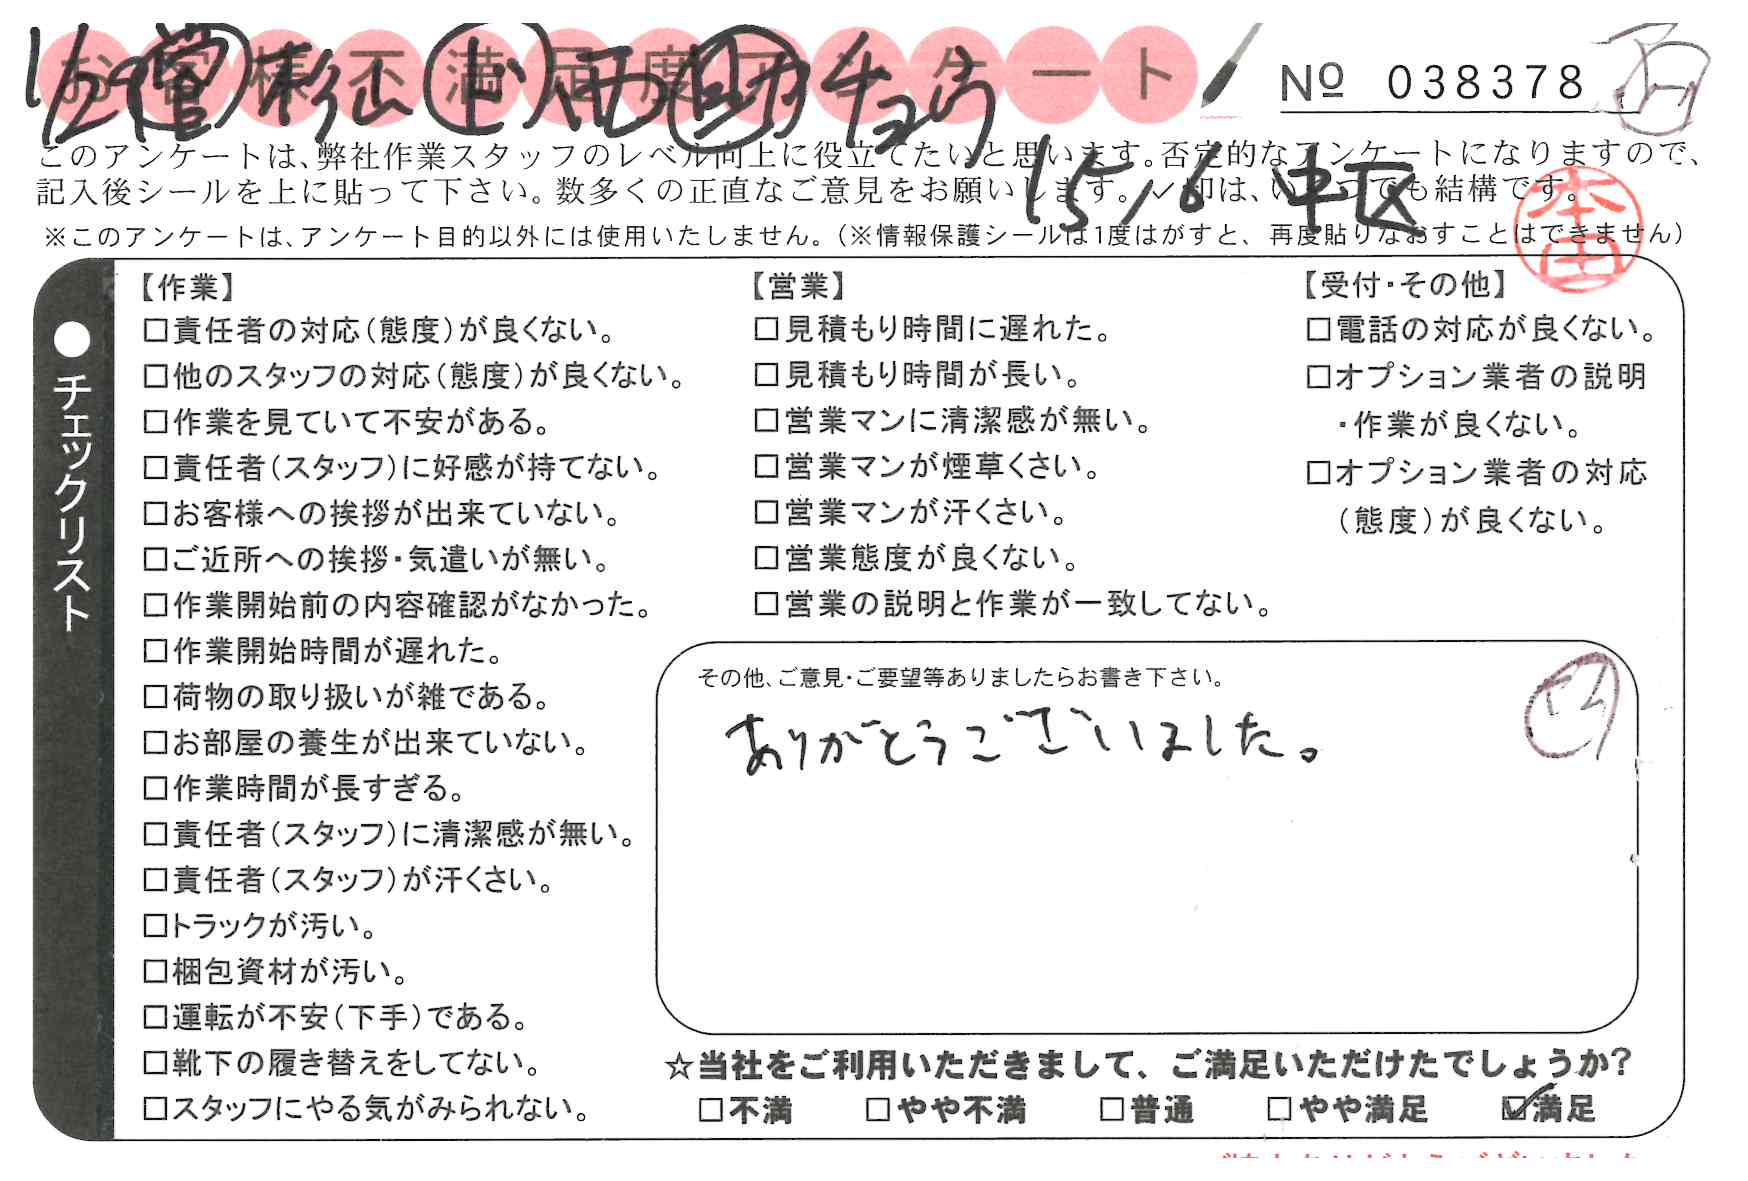 お客様不満足度アンケート
No 038378
このアンケートは、弊社作業スタッフのレベル向上に役立てたいと思います。否定的なアンケートになりますので、
記入後シールを上に貼って下さい。数多くの正直なご意見をお願いします。✓印は、いくつでも結構です。
15/6 中区
本田
※このアンケートは、アンケート目的以外には使用いたしません。(※情報保護シールは1度はがすと、再度貼りなおすことはできません)
●チェックリスト
【作業】
□責任者の対応(態度)が良くない。
□他のスタッフの対応(態度)が良くない。
□作業を見ていて不安がある。
□責任者(スタッフ)に好感が持てない。
□お客様への挨拶が出来ていない。
□ご近所への挨拶・気遣いが無い。
□作業開始前の内容確認がなかった。
□作業開始時間が遅れた。
□荷物の取り扱いが雑である。
□お部屋の養生が出来ていない。
□作業時間が長すぎる。
□責任者(スタッフ)に清潔感が無い。
□責任者(スタッフ)が汗くさい。
□トラックが汚い。
□梱包資材が汚い。
□運転が不安(下手)である。
□靴下の履き替えをしてない。
□スタッフにやる気がみられない。
【営業】
□見積もり時間に遅れた。
□見積もり時間が長い。
□営業マンに清潔感が無い。
□営業マンが煙草くさい。
□営業マンが汗くさい。
□営業態度が良くない。
□営業の説明と作業が一致してない。
【受付・その他】
□電話の対応が良くない。
□オプション業者の説明
・作業が良くない。
□オプション業者の対応
(態度)が良くない。
その他、ご意見・ご要望等ありましたらお書き下さい。
ありがとうございました。
☆当社をご利用いただきまして、ご満足いただけたでしょうか?
□不満 □やや不満 □普通 □やや満足 ☑満足